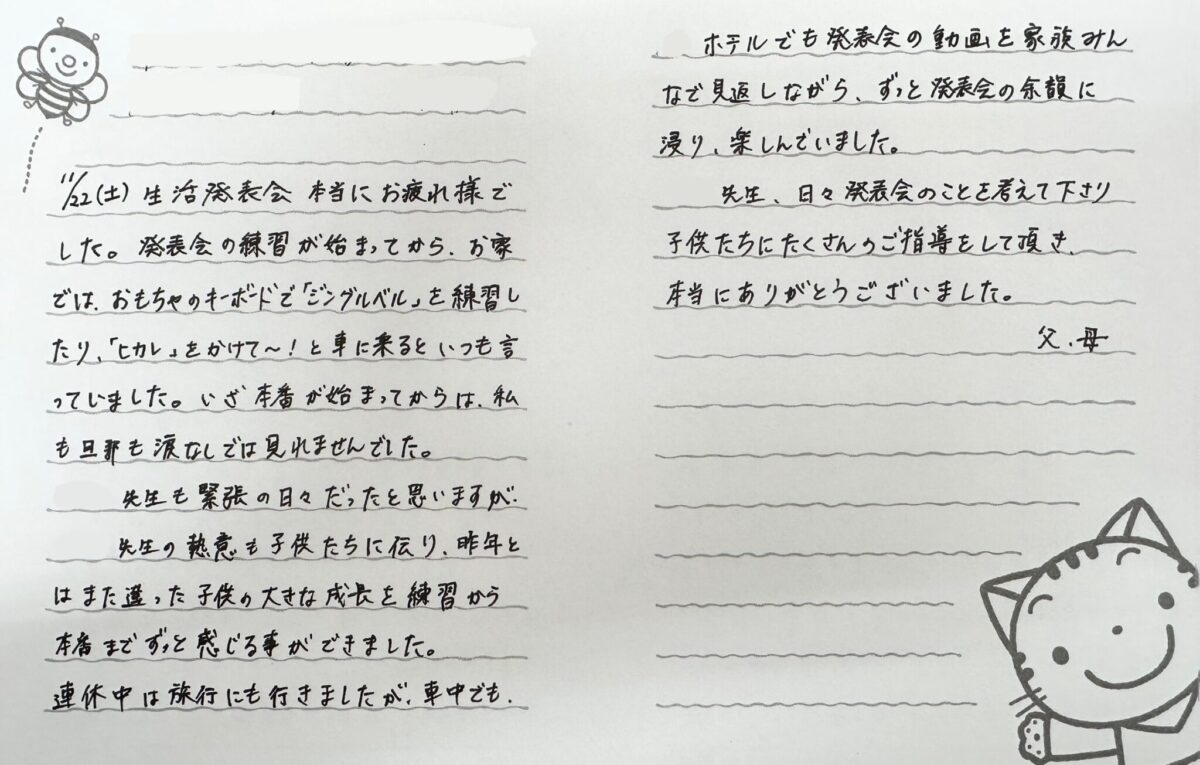 11/22(土) 生活発表会 本当にお疲れ様で
した。発表会の練習が始まってから、お家
では、おもちゃのキーボードで「ジングルベル」を練習し
たり、「ヒカレ」をかけて〜!と車に乗るといつも言
っていました。いざ本番が始まってからは、私
も旦那も涙なしでは見れませんでした。
先生も緊張の日々だったと思いますが、
先生の熱意も子供たちに伝り、昨年と
はまた違った子供の大きな成長を練習から
本番までずっと感じる事ができました。
連休中は旅行にも行きましたが、車中でも、
ホテルでも発表会の動画を家族みん
なで見返しながら、ずっと発表会の余韻に
浸り、楽しんでいました。
先生、日々発表会のことを考えて下さり
子供たちにたくさんのご指導をして頂き、
本当にありがとうございました。
父、母